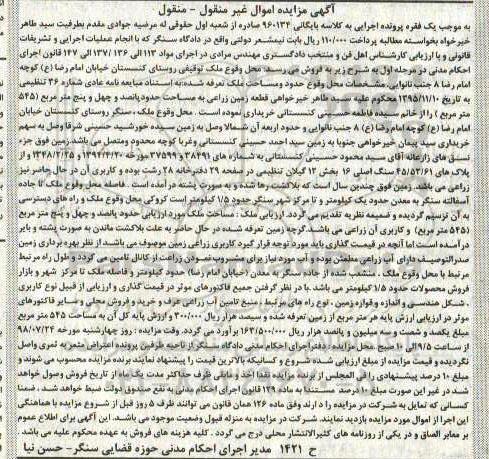 آگهی مزایده اموال غیر منقول - منقول
به موجب یک فقره پرونده اجرایی به کلاسه بایگانی ۹۶۰۱۳۴ صادره از شعبه اول حقوقی له مرضیه جوادی مقدم بطرفیت سید طاهر
خیرخواه بخواسته مطالبه پرداخت ۱۱۰/۰۰۰ ریال بابت نیمعشر دولتی واقع در دادگاه سنگر که با انجام عملیات اجرایی و تشریفات
قانونی و با ارزیابی کارشناس اهل فن و منتخب دادگستری مهندس مرادی در اجرای مواد ۱۱۳ الی ۱۳۶ /۱۳۷ الی ۱۴۷ قانون اجرای
احکام مدنی در مرحله اول به شرح زیر به فروش می رسد. محل وقوع ملک توقیفی روستای کنستان خیابان امام رضا (ع) کوچه
امام رضا ۸ جنب نانوایی. مشخصات محل وقوع حدود ومساحت ملک تعرفه شده:به استناد مبایعه نامه عادی شماره ۳۶ تنظیمی
به تاریخ ۱۳۹۵/۱۱/۱۰ محکوم علیه سید طاهر خیرخواهی قطعه زمین زراعی به مساحت حدودپانصد و چهل و پنج متر مربع (۵۴۵
متر مربع ) را از خانم سیده فاطمه حسینی کنستانی خریداری نموده است . محل وقوع ملک، سنگر روستای کنستان خیابان
امام رضا (ع) کوچه امام رضا (ع) ۸ جنب نانوایی و حدود اربعه آن :شمالا وصل به زمین سیده خورشید حسینی شرقا وصل به سهم
خریداری سید پیمان خیرخواهی جنوبا به زمین سید احمد حسینی کنستانی وغربا کوچه محدود ومتصل می باشد.زمین فوق جزء
نسق های زارعانه آقای سید محمود حسینی کنستانی به شماره های ۳۸۴۹۱ و ۳۷۵۹۹ مورخه ۱۳۹۴/۴/۳۰ و ۱۳۴۸/۲/۲۵ و از
پلاک های ۴۵/۵۳/۶۱ سنگ اصلی ۱۶ بخش ۱۲ گیلان تنظیمی در صفحه ۲۹ دفترخانه ۲۸ رشت بوده و کاربری آن در حال حاضر نیز
زراعی می باشد. زمین فوق چندین سال است که بلاکشت رها شده و به صورت پشته در آمده است . فاصله محل وقوع ملک تا جاده
آسفالته سنگر به معدن حدود یک کیلومتر و تا مرکز شهر سنگر حدود ۱/۵ کیلومتر است کروکی محل وقوع ملک و راه های دسترسی
به آن ترسیم گردیده و ضمیمه نظریه تقدیم می گردد. ارزیابی ملک : مساحت ملک مورد ارزیابی حدود پانصد و چهل و پنج متر مربع
(۵۴۵ متر مربع) و کاربری آن زراعی می باشد. گرچه زمین تعرفه شده در حال حاضر به علت بلاکشت ماندن به صورت پشته و بایر
درآمده است اما آنچه در قیمت گذاری باید مورد توجه قرار گیرد کاربری زراعی زمین موصوف می باشد. از نظر بهره برداری زمین
صدرالتوصیف دارای آب زراعی مطمئن بوده و آب مورد نیاز برای مشروب نمودن زراعت از کانال تامین می گردد و طول راه مرتبط
مرتبط با محل وقوع ملک ، منشعب شده از جاده سنگر به معدن (خیابان امام رضا) حدود کیلومتر و فاصله ملک تا مرکز شهر و بازار
فروش محصولات حدود ۱/۵ کیلومتر می باشد .با در نظر گرفتن جمیع فاکتورهای موثر در قیمت گذاری و ارزیابی از قبیل نوع کاربری
، شکل هندسی و اندازه وقواره زمین ، نوع راه های مرتبط ، منبع تامین آب زراعی عرف و خرید و فروش محلی و سایر فاکتورهای
موثر در ارزیابی ارزش پایه هر متر مربع از زمین تعرفه شده و سیصد هزار ریال ۳۰۰/۰۰۰ و ارزش پایه کل آن به مساحت ۵۴۵ متر مربع
مبلغ یکصد و شصت و سه میلیون و پانصد هزار ریال ۱۶۳/۵۰۰/۰۰۰ برآورد می گردد. وقت مزایده : روز چهارشنبه مورخه ۹۸/۰۷/۲۴
از ساعت ۹/۵ الی ۱۰ صبح مکان مزایده :دفتراجرای احکام مدنی دادگاه سنگر از ناحیه طرفین پرونده اعتراض متعربه ثمری واصل
نگردیده و قیمت مزایده از مبلغ ارزیابی شده شروع و کسانیکه بالاترین قیمت را پیشنهاد نمایند برنده مزایده محسوب می شوند و
مبلغ ۱۰ درصد پیشنهادی را فی المجلس از برنده مزایده نقدا اخذ و مابقی ظرف حداکثر مدت یک ماه از تاریخ فروش وصول خواهد
شد در غیر این صورت مبلغ ۱۰ درصد مستندا به ماده ۱۲۹ قانون اجرای احکام مدنی به نفع صندوق دولت ضبط خواهد شد. ضمنا
کسانی که تمایل به شرکت در مزایده را دارند وفق ماده ۱۲۶ همان قانون می توانند ظرف ۵ روز قبل از شروع مزایده با هماهنگی
این اجرا از اموال مورد مزایده بازدید نمایند. شرکت در مزایده به منزله قبول وضعیت موجود می باشد. این آگهی برای اطلاع عموم
بر معابر الصاق و در یکی از روزنامه های کثیرالانتشار محلی درج می گردد . کلیه هزینه های فروش به عهده محکوم علیه می باشد .
ح ۱۴۲۱ مدیر اجرای احکام مدنی حوزه قضایی سنگر- حسن نیا